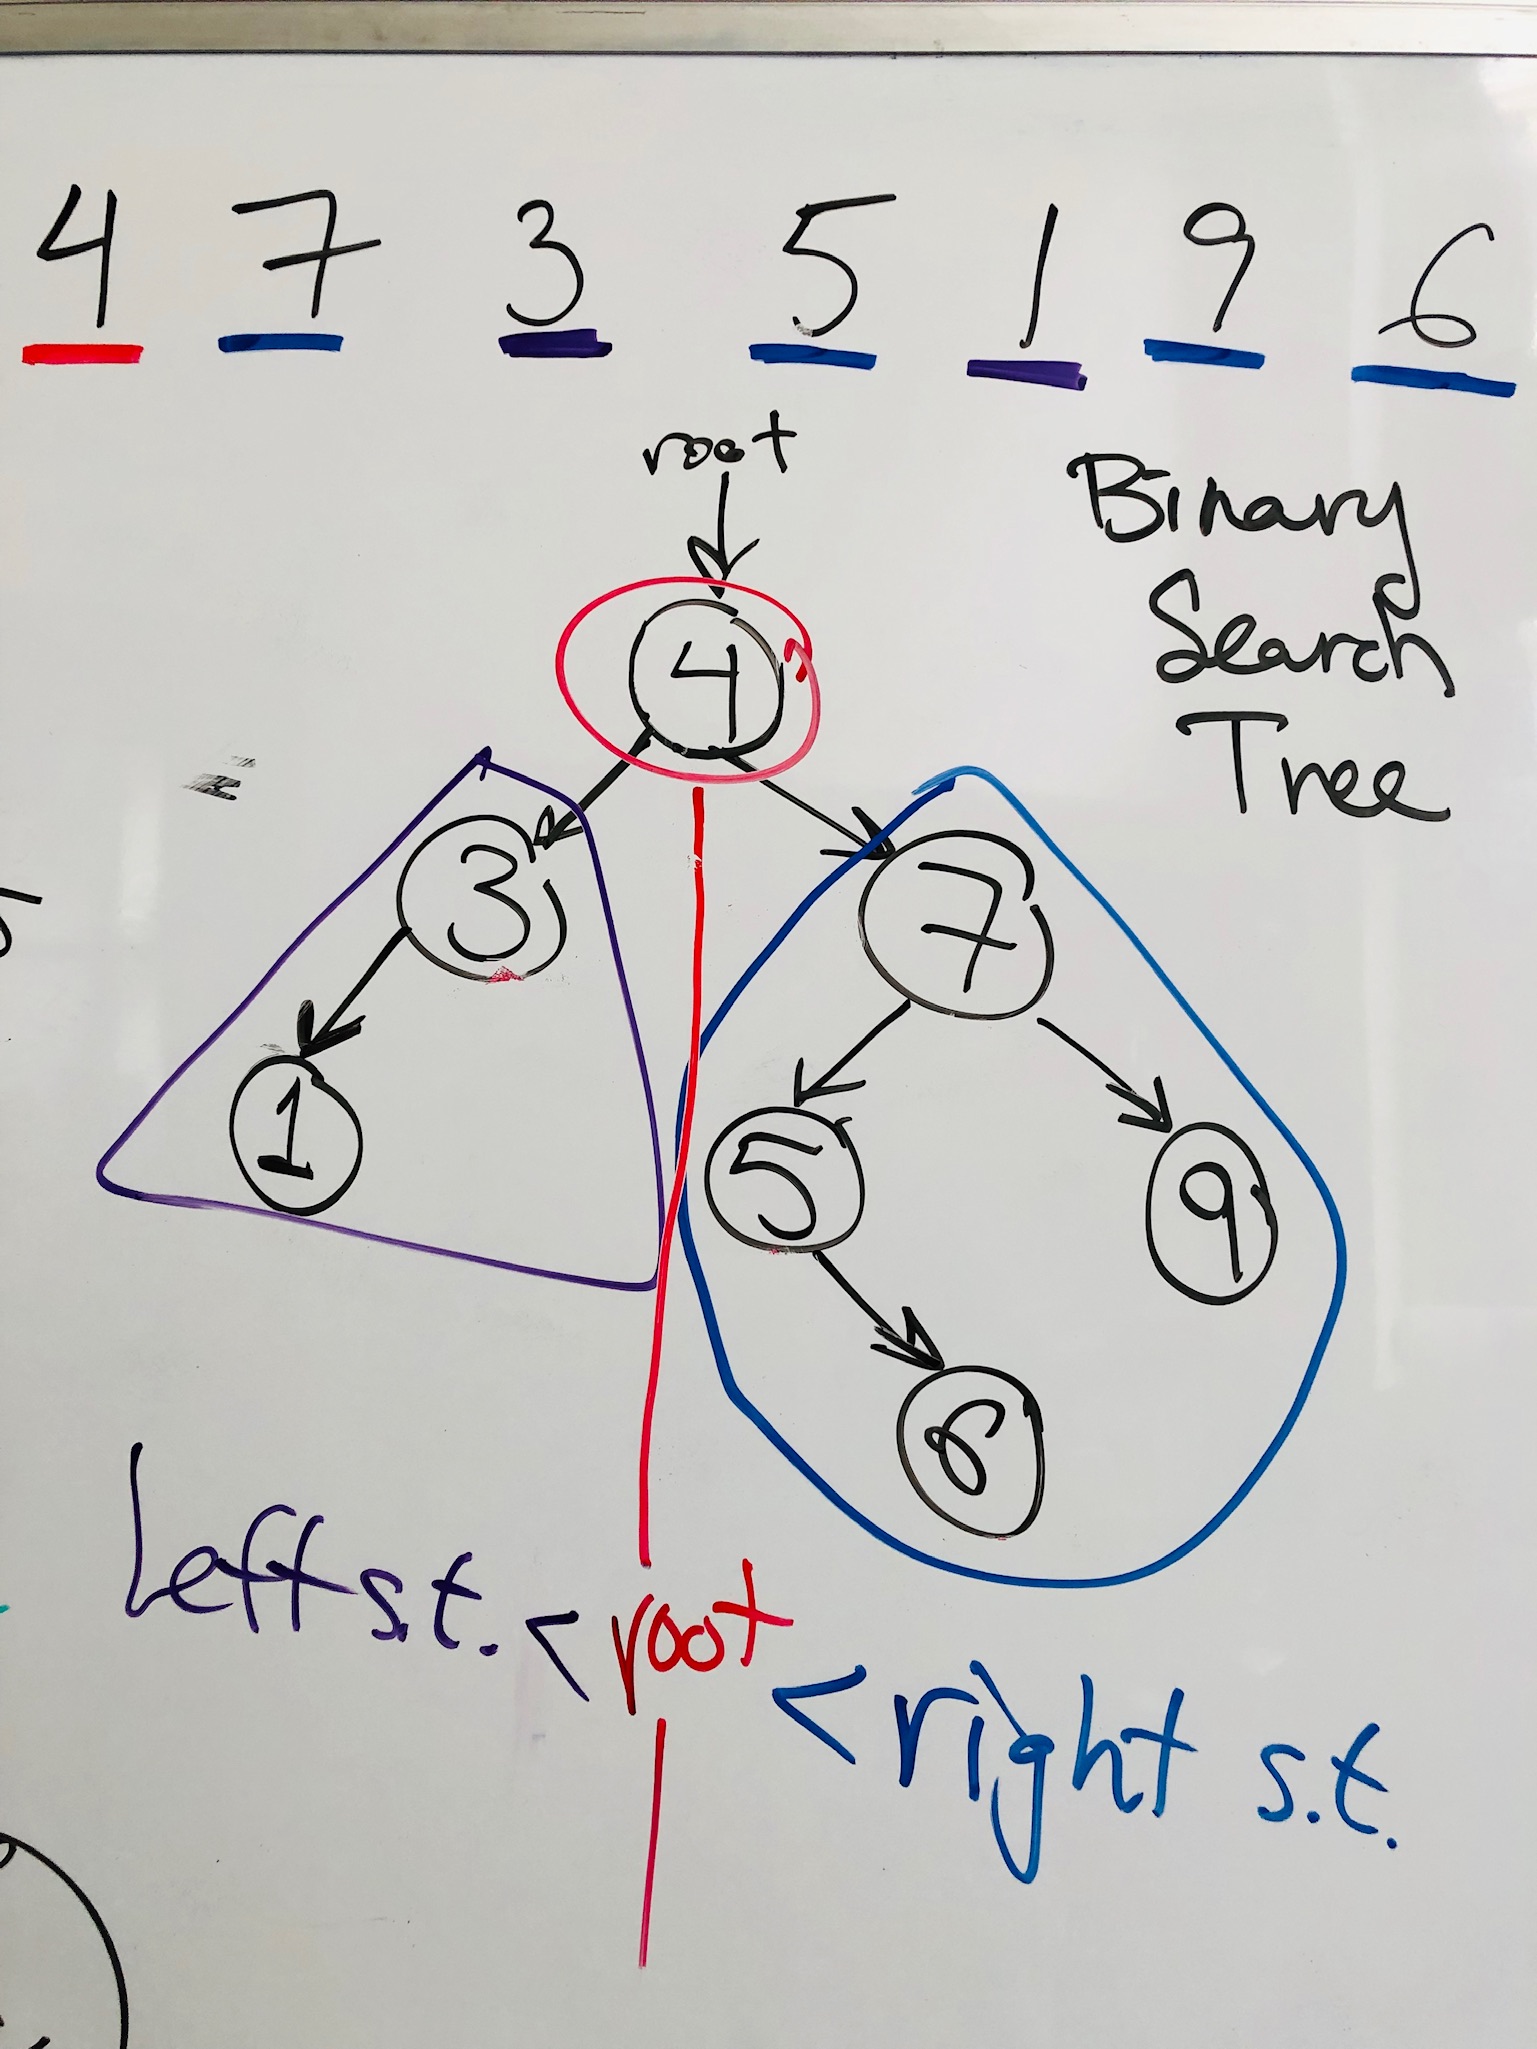 4 7 3 5 1 9 6
root
Binary
Search
Tree
4
3 7
1 5 9
6
Left s.t. < root < right s.t.